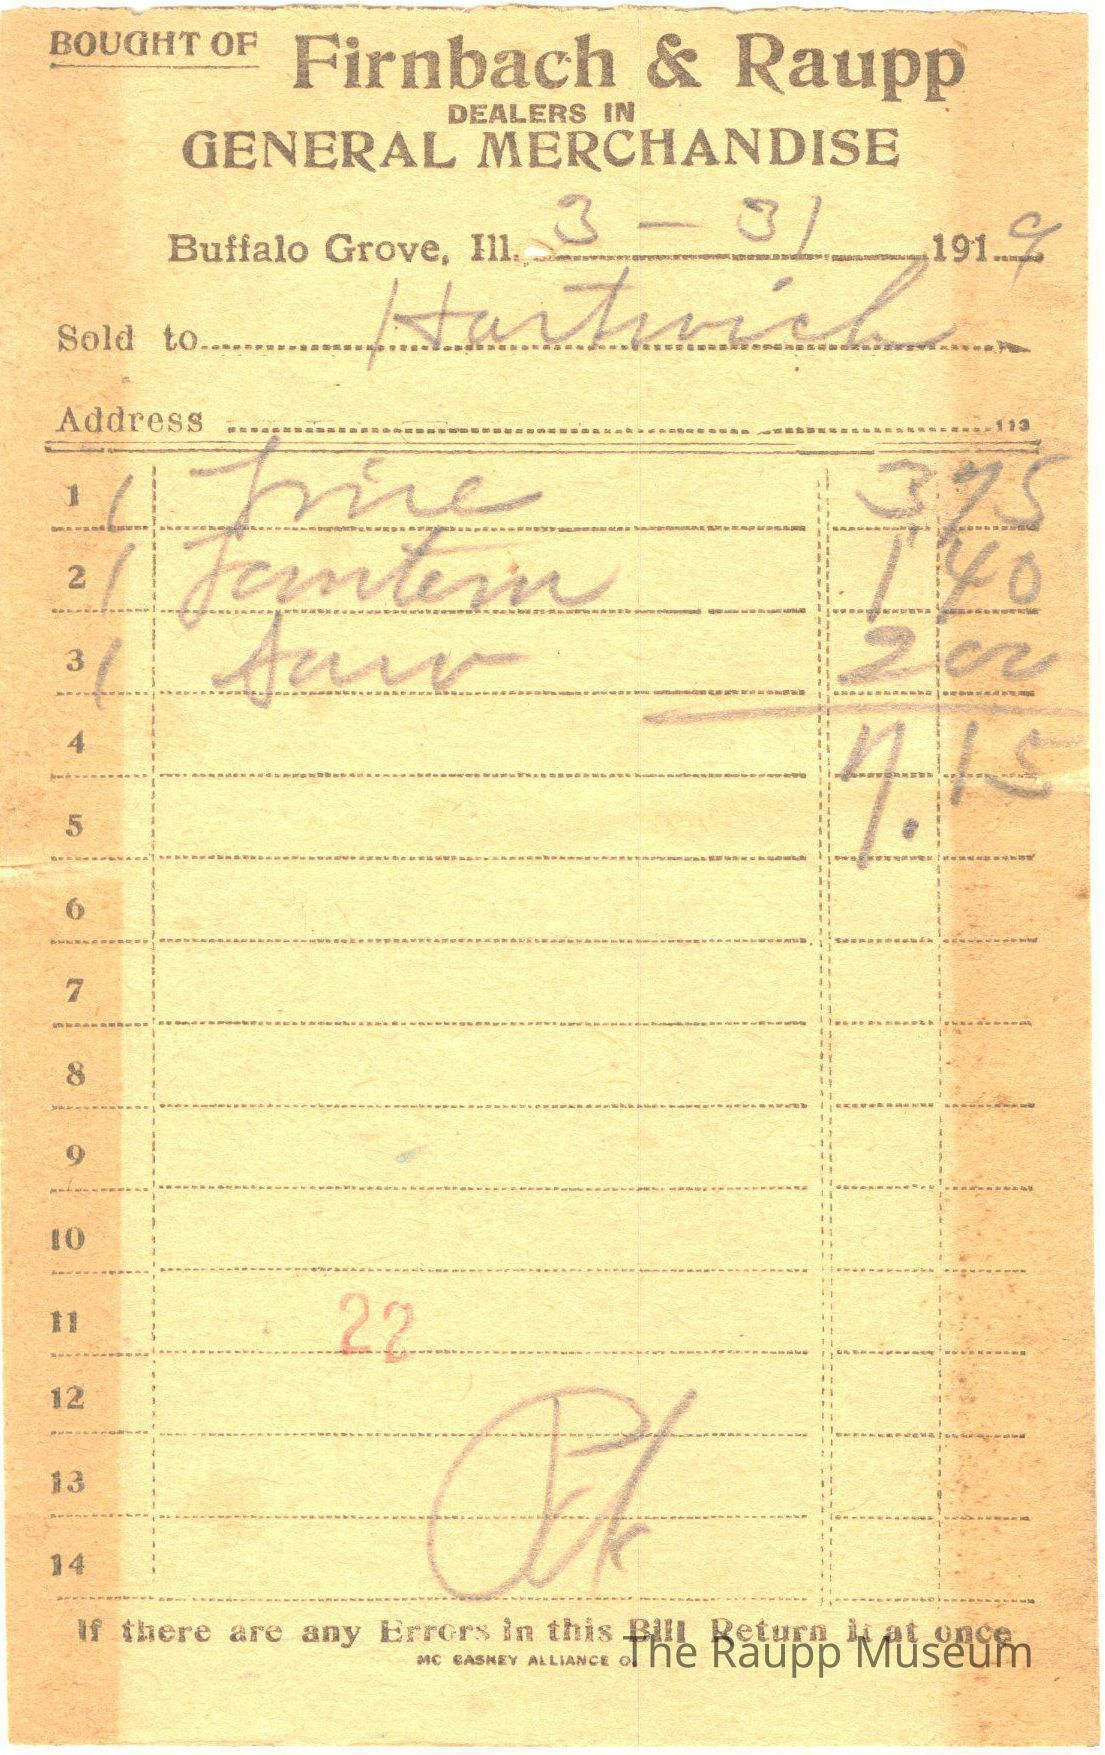 BOUGHT OF Firnbach & Raupp
DEALERS IN
GENERAL MERCHANDISE
Buffalo Grove, Ill. 3 - 31 1919
Sold to Hartwich
Address 113
1 1 3 75
2 1 Lantern 1 40
3 1 Saw 2 00
4 7.15
5
6
7
8
9
10
11 22
12
13
14
If there are any Errors in this Bill Return it at once
MC CASKEY ALLIANCE O.
The Raupp Museum